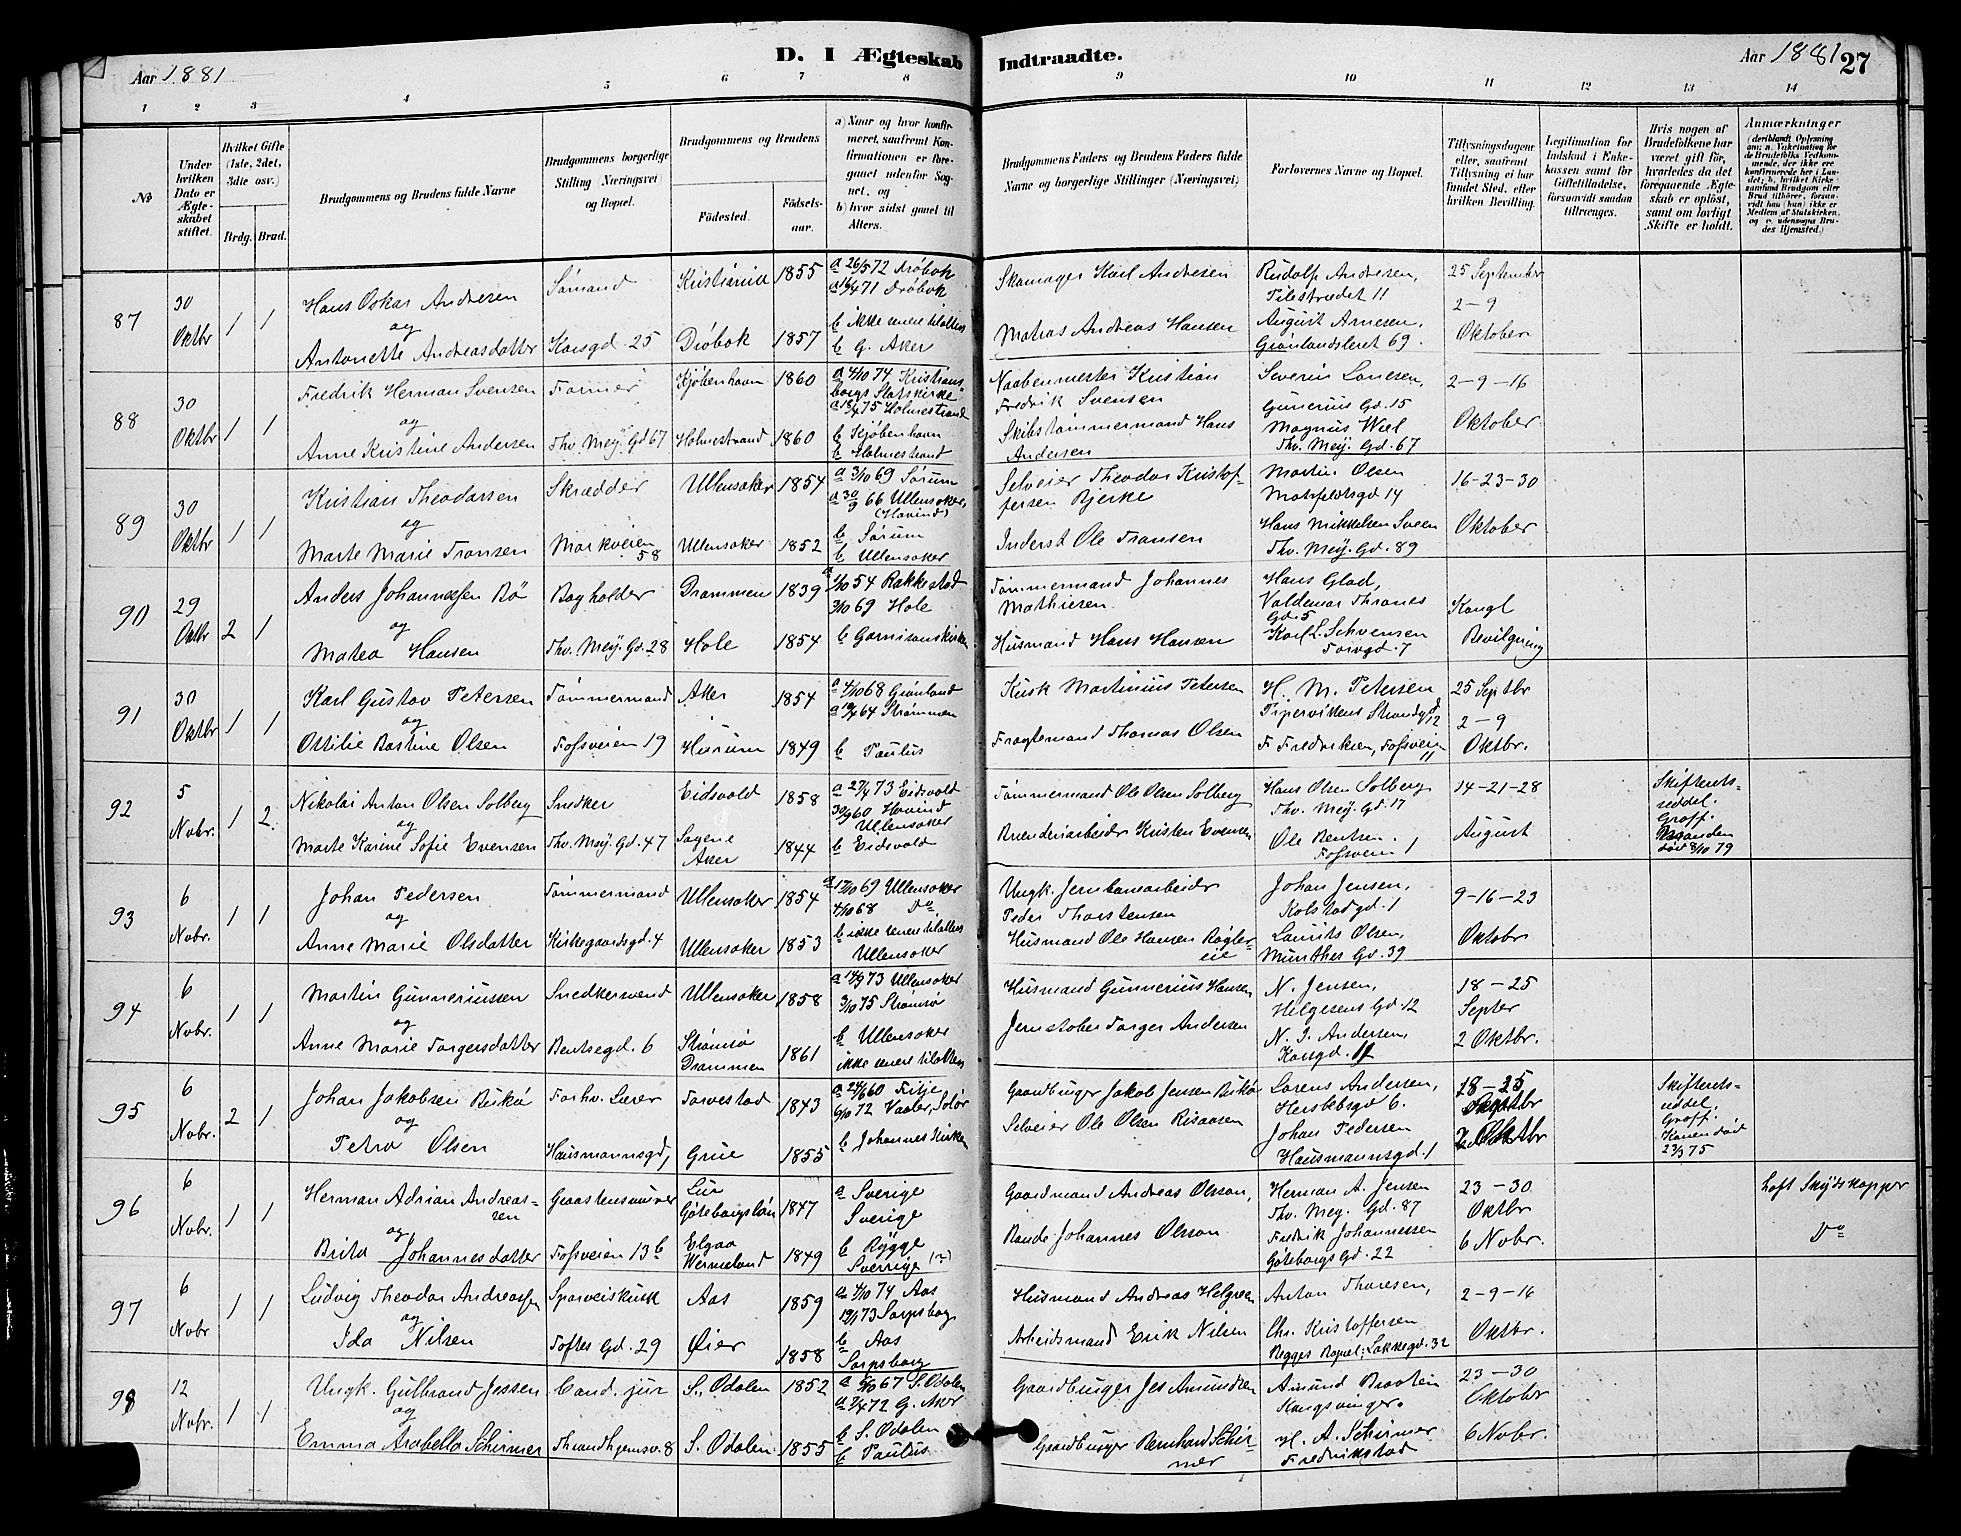 Aar 1881
D. I Ægteskab Indtraadte.
Aar 1881 27
1 2 3 4 5 6 7 8 9 10 11 12 13 14
№
Under hvilken Dato er Ægteskabet stiftet.
Hvilket Gifte (1ste, 2det, 3die osv.)
Brdg. Brud.
Brudgommens og Brudens fulde Navne
Brudgommens borgerlige Stilling (Næringsvei) og Bopæl.
Brudgommens og Brudens
Födested.
Födselsaar.
a) Naar og hvor konfirmeret, saafremt Konfirmationen er foregaaet udenfor Sognet, og
b) hvor sidst gaaet til Alters.
Brudgommens Faders og Brudens Faders fulde Navne og borgerlige Stillinger (Næringsvei)
Forlovernes Navne og Bopæl.
Tillysningsdagene eller, saafremt Tillysning ei har fundet Sted, efter hvilken Bevilling.
Legitimation for Indskud i Enkekassen samt for Giftetilladelse, forsaavidt saadan tiltrænges.
Hvis nogen af Brudefolkene har været gift för, hvorledes da det foregaaende Ægteskab er oplöst, samt om lovligt Skifte er holdt.
Anmærkninger
(deriblandt Oplysning om: a. Vaksination for de Brudefolks Vedkommende, der ikke ere konfirmerede her i Landet; b. hvilket Kirkesamfund Brudgom eller Brud tilhörer, forsaavidt han (hun) ikke er Medlem af Statskirken, og c. udensogns Brudes Hjemsted.)
87 30 Oktbr 1 1
Hans Oskar Andresen og Antonette Andreasdatter
Sømand Korsgd. 25
Kristiania 1855
Drøbok 1857
a 26/5 72 Drøbok
a 16/4 71 Drøbok
b ikke senere tilalters
b G. Aker
Skomager Karl Andresen
Matros Andreas Hansen
Rudolf Andresen, Pilestrædet 11
August Arnesen, Grønlandsleret 69.
25 September 2-9 Oktober
88 30 Oktbr 1 1
Fredrik Herman Svensen og Anne Kristine Andersen
Formér Thv. Mey. Gd 67
Kjøbenhavn 1860
Holmestrand 1860
a 4/10 74 Kristiansborgs Slotskirke
a 18/4 75 Holmestrand
b Kjøbenhavn
b Holmestrand
Naabenmester Kristian Fredrik Svensen
Skibstømmermand Hans Andersen
Severin Lanesen, Gunerius Gd. 15
Magnus Wiel Thv. Mey. Gd. 67
2-9-16 Oktober
89 30 Oktbr 1 1
Kristian Theodorsen og Marte Marie Fransen
Skrædder Markveien 58
Ullensaker 1854
Ullensaker 1852
a 3/10 69 Sørum
a 30/9 66 Ullensaker, (Hovind)
b Sørum
b Ullensaker
Selveier Theodor Kristoffersen Bjerke
Inderst Ole Fransen
Martin Olsen Motzfeldtsgd 14
Hans Mikkelsen Sveen Thv. Mey. Gd. 89
16-23-30 Oktober
90 29 Oktbr 2 1
Anders Johannessen Bö og Matea Hansen
Bogholder Thv. Mey. Gd. 28
Drammen 1839
Hole 1854
a 1/10 54 Rakkestad
3/10 69 Hole
b Garnisonskirken
Tømmermand Johannes Mathiesen
Husmand Hans Hansen
Hans Glad, Valdemar Thranes Gd. 5
Karl L. Schvensen Torvgd. 7
Kongl Bevilgning
91 30 Oktbr 1 1
Karl Gustav Petersen og Ottilie Bastine Olsen
Tømmermand Fossveien 19
Aker 1854
Hurum 1849
a 4/10 68 Grønland
a 10/4 64 Strømmen
b Paulus
Kusk Martinius Petersen
Fragtemand Thomas Olsen
H. M. Petersen Pipervikens Strandgd 12
F Fredriksen, Fossveien 11
25 Septbr 2-9 Oktbr.
92 5 Nvbr. 1 2.
Nikolai Anton Olsen Solberg og Marte Karine Sofie Evensen
Snedker Thv. Mey. Gd. 47
Eidsvold 1858
Sagene Aker 1844
a 27/4 73 Eidsvold
30/9 60 Hovind Ullensaker
b Eidsvold
Tømmermand Ole Olsen Solberg
Brænderiarbeider Kristen Evensen
Hans Olsen Solberg Thv. Mey. Gd. 17
Ole Bentsen Fossvein 1
14-21-28 August
Skifteretsseddel. Groff. Manden död 8/10 79
93 6 Nvbr. 1 1
Johan Pedersen og Anne Marie Olsdatter
Tømmermand Kirkegaardsgd. 4
Ullensaker 1854
Ullensaker 1853
a 17/10 69 Ullensaker
4/10 68 Do.
b ikke senere tilalters
Ullensaker
Ungk. Jernbanarbeider Peder Thorstensen
Husmand Ole Hansen Røgleeie
Johan Jensen, Kolstadgd. 1
Laurits Olsen, Munthes Gd. 39
9-16-23 Oktobr
94 6 Nvbr. 1 1
Martin Gunneriussen og Anne Marie Torgersdatter
Snedkersvend Bentsegd. 6
Ullensaker 1858
Strømsø Drammen 1861
a 14/9 73 Ullensaker
3/10 75 Strømsø
b Ullensaker
ikke senere tilalters
Husmand Gunnerius Hansen
Jernstøber Torger Andersen
N. Jensen, Helgesens Gd. 12
N. J. Andersen, Korsgd. 12
18-25 Septer 2 Oktbr.
95 6 Nvbr. 2 1
Johan Jakobsen Birkø og Petra Olsen
Forhv. Lærer Hausmannsgd,
Torvestad 1843
Grue 1855
a 24/6 60 Fitje
6/10 72 Vaaler, Solør
b Johannes Kirken
Gaardbruger Jakob Jensen Birkø
Selveier Ole Olsen Risaasen
Lorens Andersen, Herslebsgd 6.
Johan Pedersen Hausmannsgd. 1
18-25 Septbr 2 Oktbr
Skifteretsseddel, Groff. Konen död 23/3 75
96 6 Nvbr. 1 1
Herman Adrian Andreassen og Brita Johannesdatter
Graastensmurer Fossveien 13 b
Lur Göteborgslän 1847
Elgaa Wermeland 1849
a Sverige
Sverige
b Rygge
Sverrige (?)
Gaardmand Andreas Olsson,
Bonde Johannes Olsson
Herman A. Jensen Thv. Mey. Gd. 87
Fredrik Johannessen Göteborgs Gd. 22
23-30 Oktbr 6 Nvbr.
haft Skydskopper
Do
97 6 Nvbr 1 1
Ludvig Theodor Andreassen og Ida Nilsen
Sporveiskusk Toftes Gd. 29
Aas 1859
Øier 1858
a 4/10 74 Aas
19/1 73 Sarpsborg
b Aas
Sarpsborg
Husmand Andreas Helgesen
Arbeidsmand Erik Nilsen
Anton Thoresen,
Chr. Kristoffersen
Begges Bopæl; Løkkegd. 32
2-9-16 Oktbr.
98 12 Nvbr. 1 1
Ungk. Gulbrand Jessen og Emma Arabella Schirmer
Cand. jur Throndhjemsv. 8
S. Odalen 1852
S. Odalen 1855
a 6/10 67 S. Odalen
a 7/4 72 G. Aker
b S. Odalen
b Paulus
Gaardbruger Jes Amundsen
Gaardbruger Bernhard Schirmer
Amund Braaten Kongsvinger.
H. A. Schirmer Fredrikstad
23-30 Oktober 6 Nvbr.